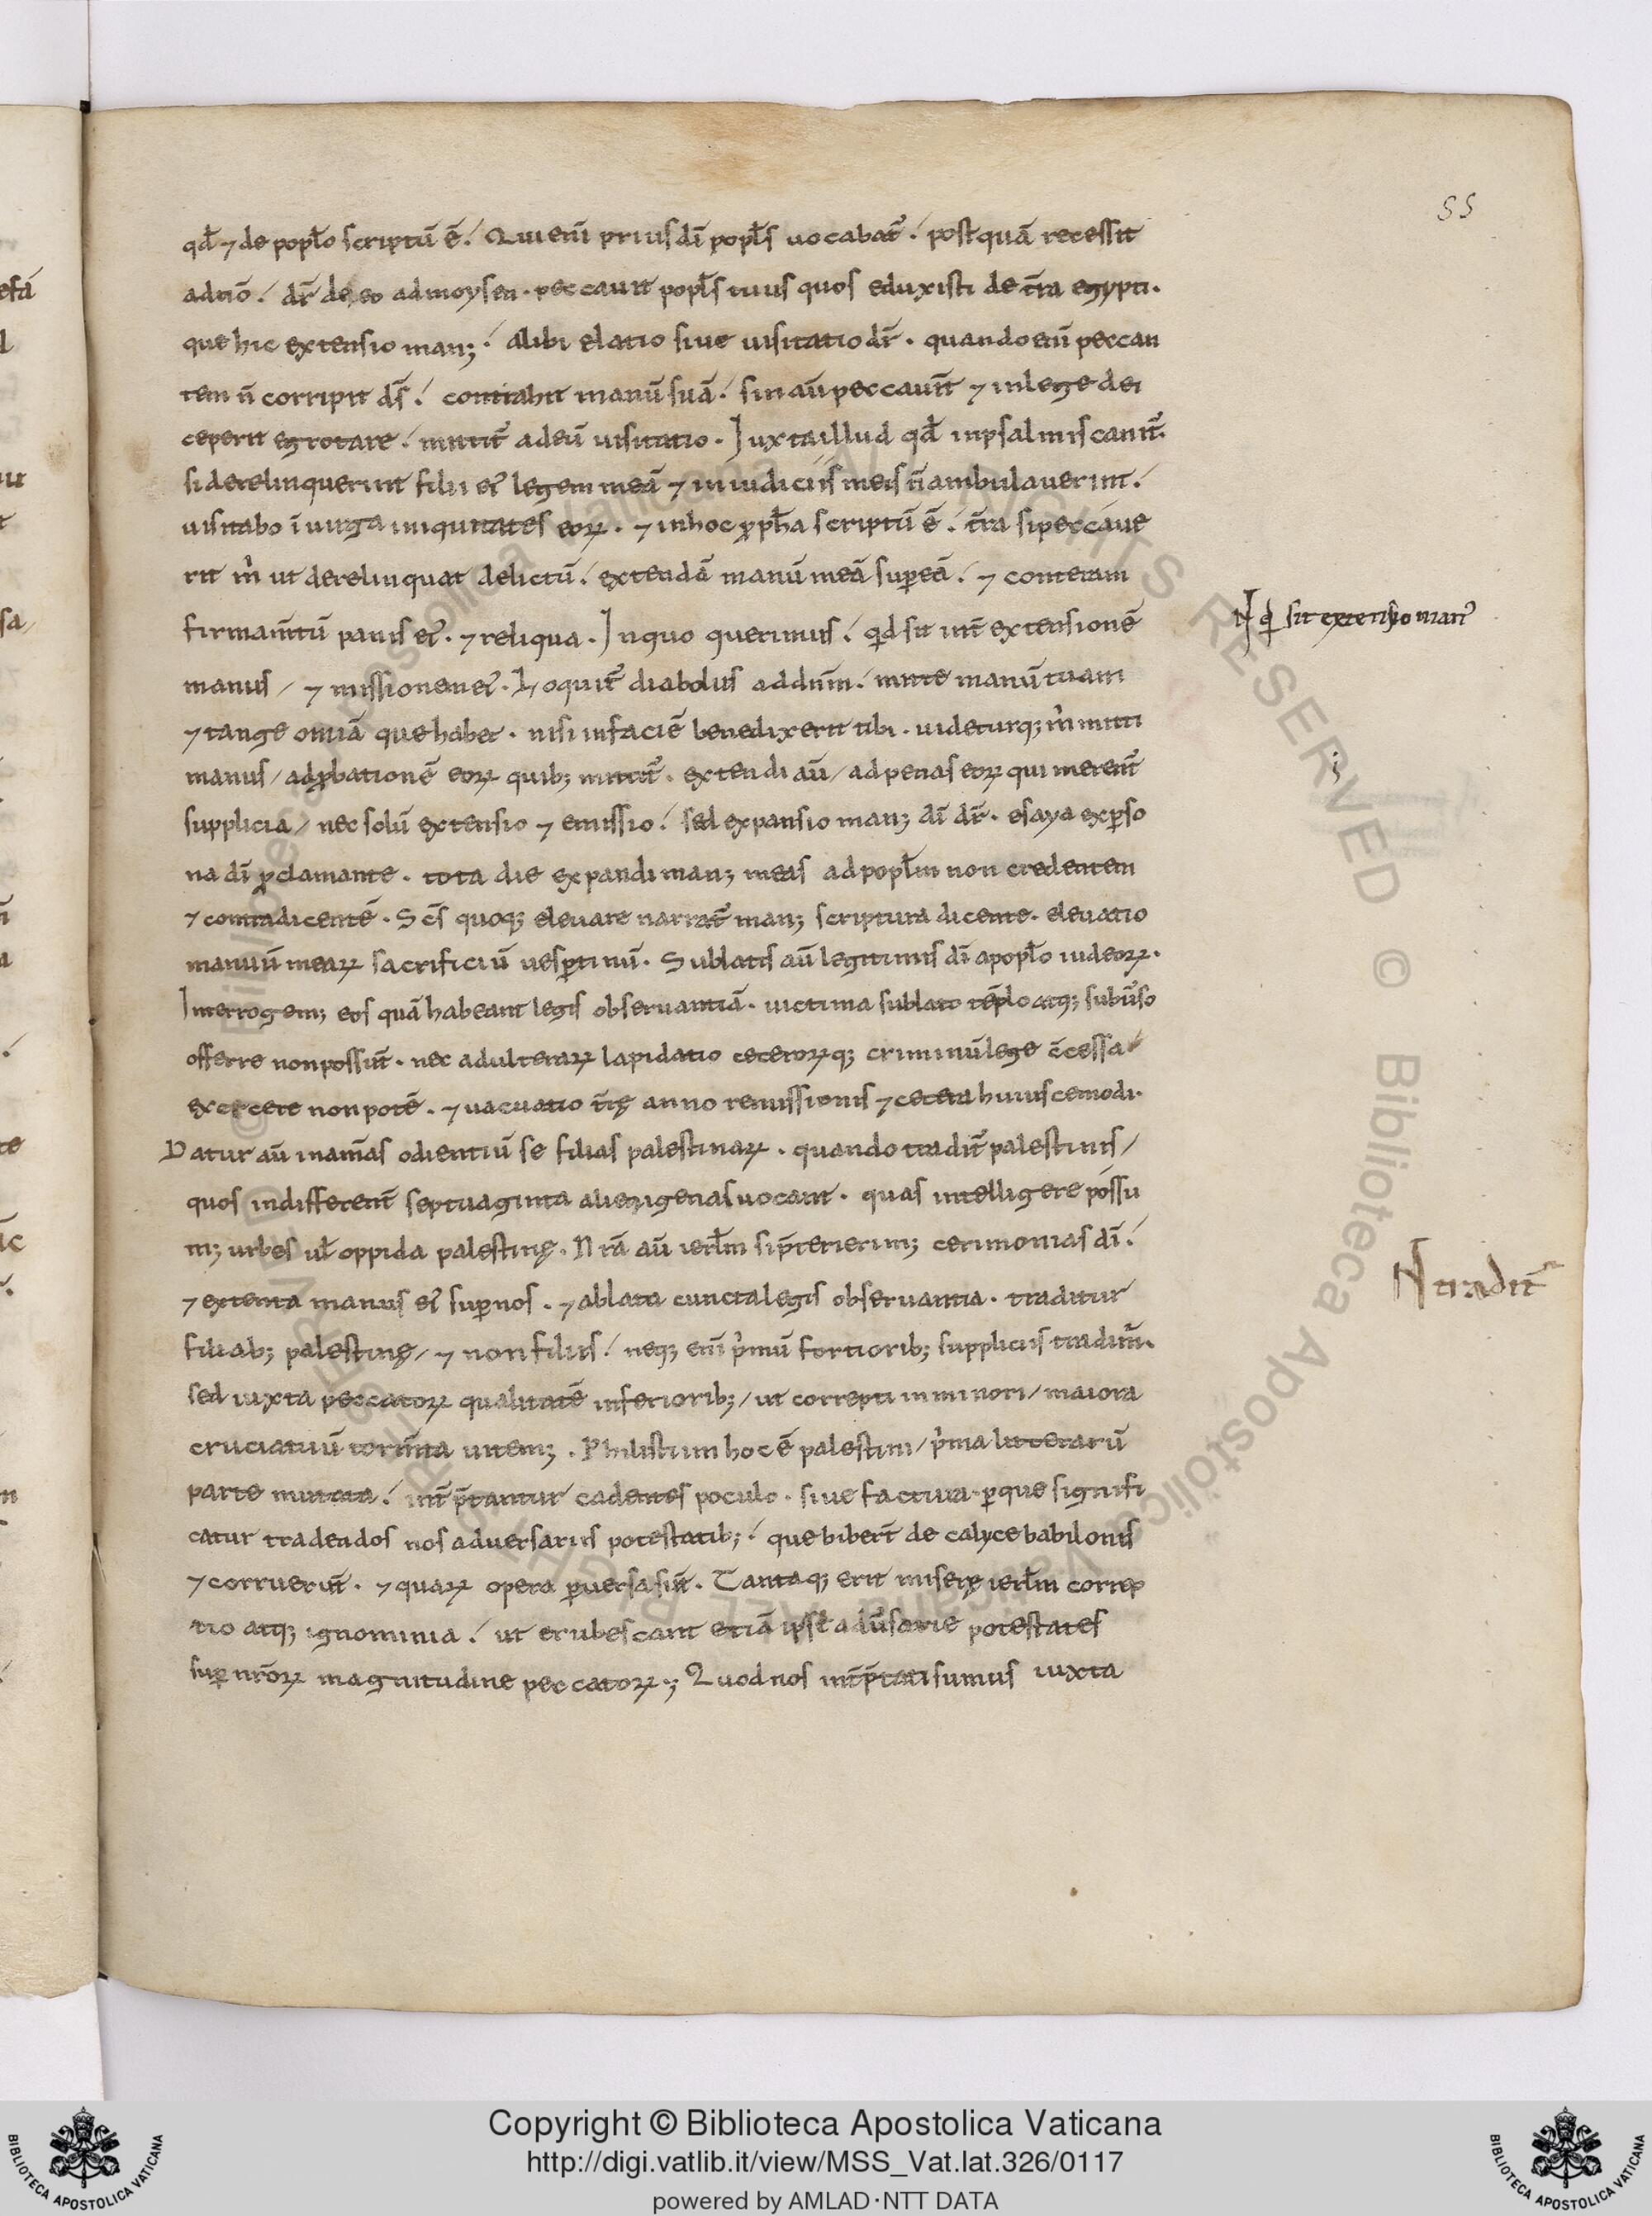 55
qđ ⁊ de poplo scriptū ē. Qui eni prius dī popls uocabat̄. postquā recessit
ad n̄o. dr̄ de eo ad moysen. peccauit popls tuus quos eduxisti de tr̄a egypti.
que hic extensio man; alibi elatio siue uisitatio dr̄. quando eni peccan
tem n̄ corripit ds̄. contrahit manū suā. sin aū peccauit̄ ⁊ in lege dei
ceperit egrotare. mittit̄ ad eū uisitatio. Iuxta illud qđ in psalmis canit̄.
si dereliquerint filii ei᾽ legem meā ⁊ in iudiciis meis n̄ ambulauerint.
uisitabo ī uirga iniquitates eoꝝ. ⁊ in hoc ꝓph̄a scriptū ē. tr̄a si peccaue
rit m̄ ut derelinquat delictū. extendā manū meā sup eā. ⁊ conteram
firmam̄tū panis ei᾽. ⁊ reliqua. In quo querimus. qđ sit int̄ extensionē
manus / ⁊ missionem ei᾽. Loquit̄ diabolus ad dn̄m. mitte manū tuam
⁊ tange omīa que habet. nisi in faciē benedixerit tibi. uideturq; m̄ mitti
manus / ad ꝓbationē eoꝝ quib; mittit̄. extendi aū / ad penas eoꝝ qui merent̄
supplicia / nec solū extensio ⁊ emissio. sed expansio man; dī dr̄. esaya ex ꝑso
na dī ꝓclamante. tota die expandi man; meas ad poplm non credentem
⁊ contradicentē. Sc̄s quoq; eleuare narrat̄ man; scriptura dicente. eleuatio
manuū mearꝝ sacrificiū uesꝑtinū. Sublatis aū legitimis dī a poplo iudeoꝝ.
Interrogem; eos quā habeant legis obseruantiā. uictima sublato tēplo atq; subūso
offerre non possūt. nec adulterarꝝ lapidatio ceteroꝝq; criminū lege c̄cessa
exercere non potē. ⁊ uacuatio tr̄ę anno remissionis ⁊ cetera huiuscemodi.
Datur aū in anīas odientiū se filias palestinarꝝ. quando tradit̄ palestinis /
quos indifferent̄ septuaginta alienigenas uocant. quas intelligere possu
m; urbes ul oppida palestinę. N rā aū ierlm si p̄terierim; cerimonias dī.
⁊ extenta manus ei᾽ sup nos. ⁊ ablata cuncta legis obseruantia. traditur
filiab; palestinę / ⁊ non filiis. neq; eni p̄mū fortiorib; suppliciis tradim̄.
sed iuxta peccatoꝝ qualitatē inferiorib; / ut correpti in minori / maiora
cruciatuū torm̄ta uitem;. Philistiim hoc ē palestini / p̄ma litterarū
parte mutata. int̄p̄tantur cadentes poculo. siue factura. ꝑ que signifi
catur tradendos nos aduersariis potestatib;. que biberт̄ de calyce babilonis
⁊ corruerūt. ⁊ quarꝝ opera ꝑuersa sūt. Tantaq; erit miserę ierlm correp
tio atq; ignominia. ut erubescant etiā ipsę adūsarie potestates
sup nr̄oꝝ magnitudine peccatoꝝ.; Quod nos int̄p̄tati sumus iuxta
N qđ sit extensio man᾽
N tradit̄
Copyright © Biblioteca Apostolica Vaticana
http://digi.vatlib.it/view/MSS_Vat.lat.326/0117
powered by AMLAD·NTT DATA
BIBLIOTECA APOSTOLICA VATICANA
BIBLIOTECA APOSTOLICA VATICANA